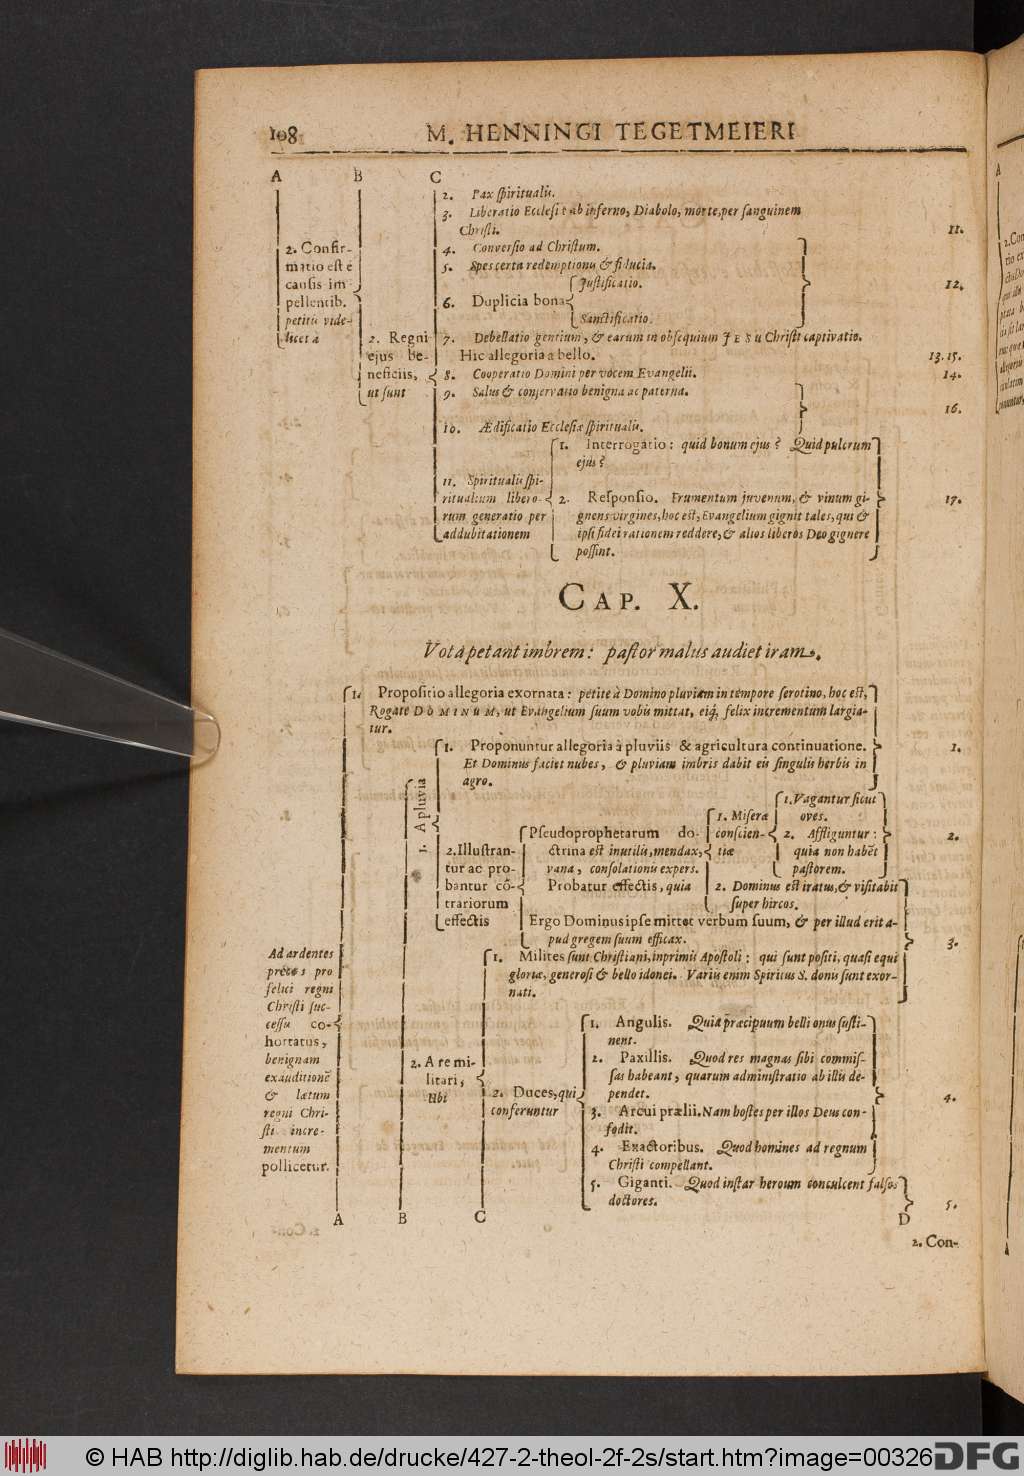 108
M. HENNINGI TEGETMEIERI
A B C
2. Confir-
matio est è
causis im-
pellentib.
petitis vide-
licet à
2. Regni
ejus be-
neficiis,
ut sunt
2. Pax spiritualis.
3. Liberatio Ecclesiæ ab inferno, Diabolo, morte, per sanguinem
Christi.
11.
4. Conversio ad Christum.
5. Spes certa redemptionis & fiducia.
6. Duplicia bona
Justificatio.
Sanctificatio.
12.
7. Debellatio gentium, & earum in obsequium JESU Christi captivatio.
Hic allegoria à bello.
13. 15.
8. Cooperatio Domini per vocem Evangelii.
14.
9. Salus & conservatio benigna ac paterna.
10. Ædificatio Ecclesiæ spiritualis.
16.
11. Spiritualis spi-
ritualium libero-
rum generatio per
addubitationem
1. Interrogatio: quid bonum ejus? Quid pulcrum
ejus?
2. Responsio. Frumentum juvenum, & vinum gi-
gnens virgines, hoc est, Evangelium gignit tales, qui &
ipsi fidei rationem reddere, & alios liberos Deo gignere
possint.
17.
CAP. X.
Vota petant imbrem: pastor malus audiet iram.
Ad ardentes
preces pro
felici regni
Christi suc-
cessu co-
hortatus,
benignam
exauditionē
& lætum
regni Chri-
sti incre-
mentum
pollicetur.
1. Propositio allegoria exornata: petite à Domino pluviam in tempore serotino, hoc est,
Rogate DOMINUM, ut Evangelium suum vobis mittat, eiq́, felix incrementum largia-
tur.
1. A pluvia
1. Proponuntur allegoria à pluviis & agricultura continuatione.
Et Dominus faciet nubes, & pluviam imbris dabit eis singulis herbis in
agro.
1.
2. Illustran-
tur ac pro-
bantur cō-
trariorum
effectis
Pseudoprophetarum do-
ctrina est inutilis, mendax,
vana, consolationis expers.
Probatur effectis, quia
1. Miseræ
conscien-
tiæ
1. Vagantur sicut
oves.
2. Affliguntur:
quia non habēt
pastorem.
2.
2. Dominus est iratus, & visitabit
super hircos.
Ergo Dominus ipse mittet verbum suum, & per illud erit a-
pud gregem suum efficax.
3.
2. A re mi-
litari,
Ubi
1. Milites sunt Christiani, inprimis Apostoli: qui sunt positi, quasi equi
gloriæ, generosi & bello idonei. Variis enim Spiritus S. donis sunt exor-
nati.
2. Duces, qui
conferuntur
1. Angulis. Quia præcipuum belli onus susti-
nent.
2. Paxillis. Quod res magnas sibi commis-
sas habeant, quarum administratio ab illis de-
pendet.
3. Arcui prælii. Nam hostes per illos Deus con-
fodit.
4. Exactoribus. Quod homines ad regnum
Christi compellant.
4.
5. Giganti. Quod instar heroum conculcent falsos
doctores.
5.
A B C D
2. Con-
© HAB http://diglib.hab.de/drucke/427-2-theol-2f-2s/start.htm?image=00326
DFG